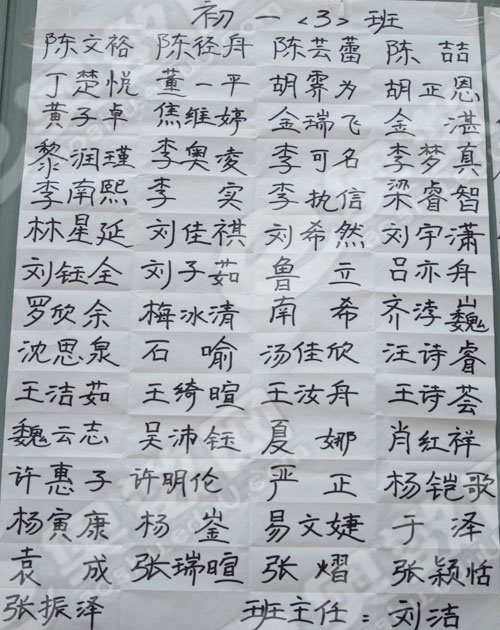 初一<3>班
陈文裕 陈径舟 陈芸蕾 陈喆
丁楚悦 董一平 胡霁为 胡正恩
黄子卓 焦维婷 金瑞飞 金湛
黎润瑾 李奥凌 李可名 李梦真
李南熙 李实 李执信 梁睿智
林星延 刘佳祺 刘希然 刘宇潇
刘钰全 刘子茹 鲁立 吕亦舟
罗欣余 梅冰清 南希 齐浡巍
沈思泉 石喻 汤佳欣 汪诗睿
王洁茹 王绮暄 王汝舟 王诗荟
魏云志 吴沛钰 夏娜 肖红祥
许惠子 许明伦 严正 杨铠歌
杨寅康 杨崟 易文婕 于泽
袁成 张瑞暄 张熠 张颖恬
张振泽 班主任：刘洁